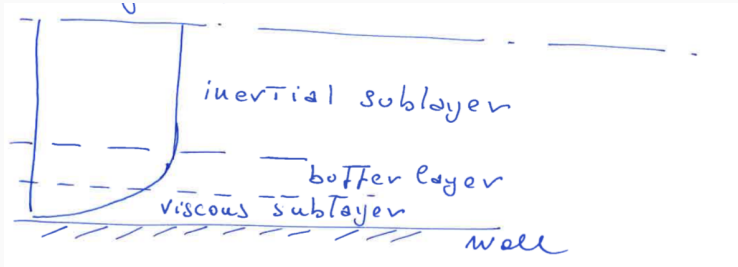 U
inertial sublayer
buffer layer
viscous sublayer
Wall